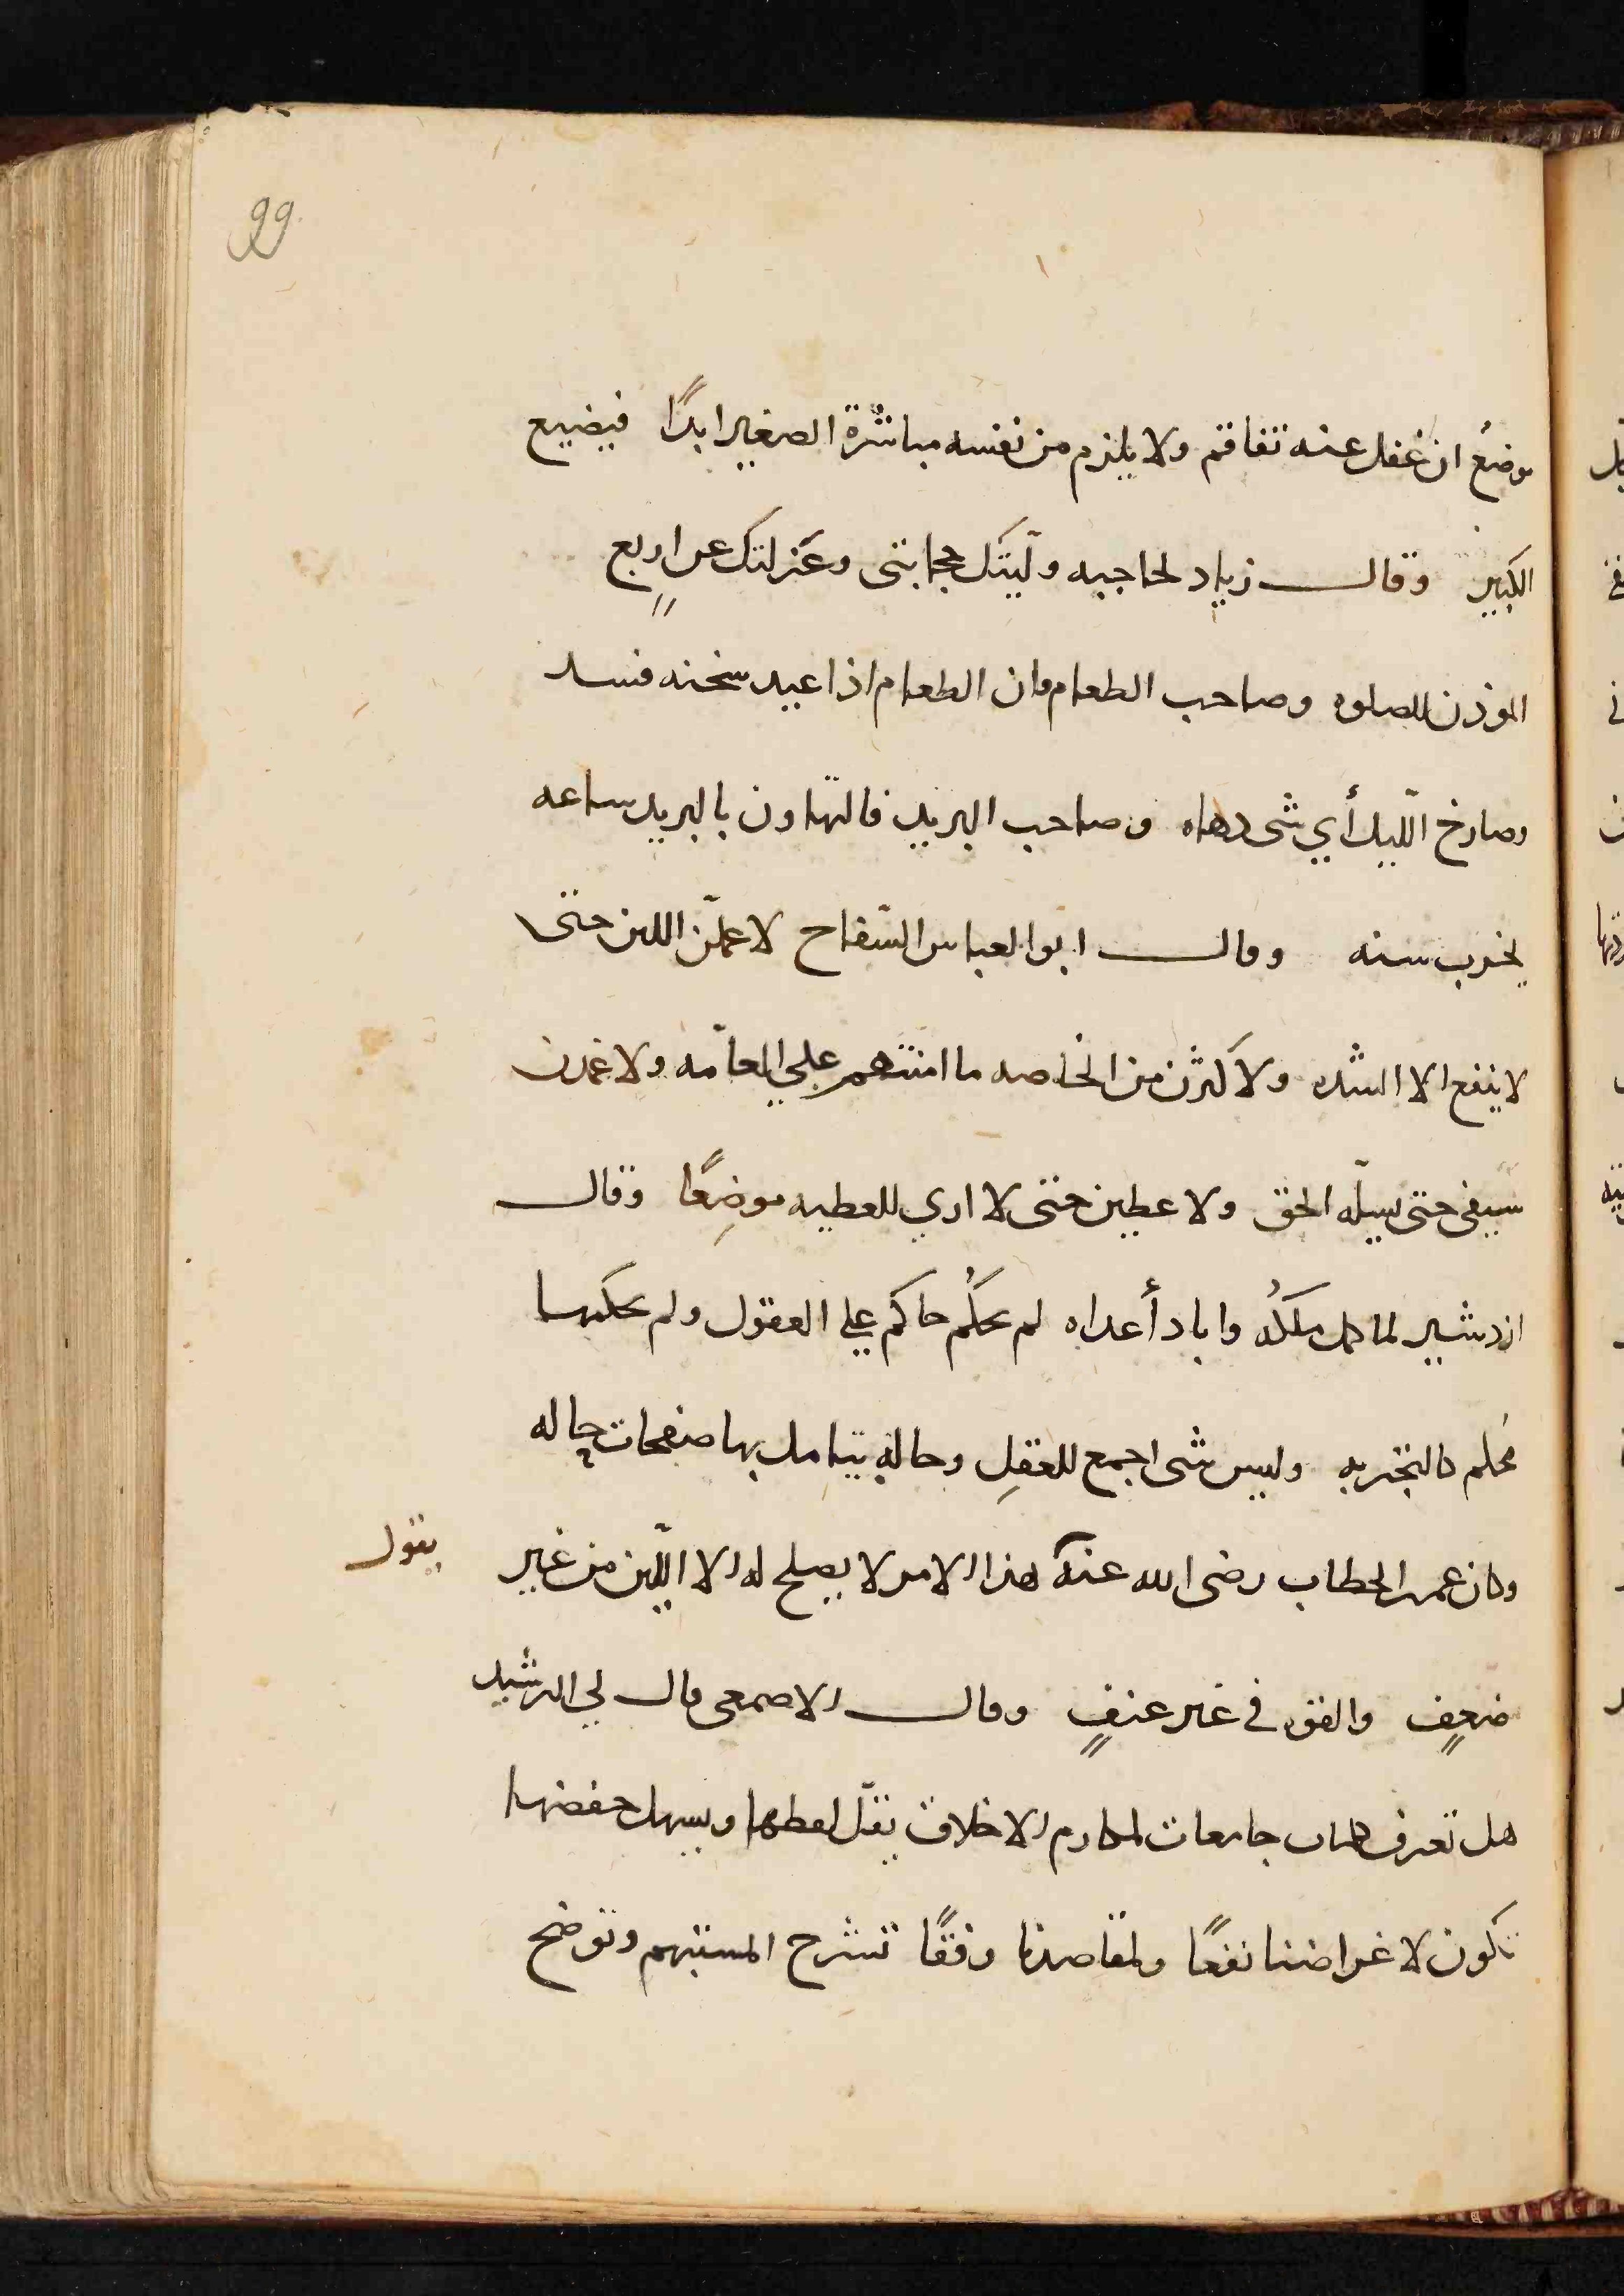 99
موضعُ ان غفل عنه تفاقم ولا يلزم من نفسه مباشرة الصغير ابدًا فيضيع
الكبير وقال زياد لحاجبه ولّيتك حجابتى وعَزلتك عن اربعٍ
الموذن للصلوه وصاحب الطعام فان الطعام اذا عيد سخنه فسد
وصارخ اللّيل أي شى دهاه وصاحب البريد فالتهاون بالبريد ساعه
يخرب سنه وقال ابو العباس السّفاح لاعملنّ اللين حتى
لا ينفع الا الشده ولاكثرن من الخاصه ما امنتهم على العامّه ولاغمدن
سيفى حتى يسلّه الحق ولاعطين حتى لا اري للعطيه موضِعًا وقال
ازدشير لما كمل ملكُه واباد أعداه لم يحكُم حاكم على العقول ولم يحكمها
مُحكم كالتجربه وليس شى اجمع للعقلِ وحالةٍ يتامل بها صفحات حاله
وكان عمر الخطاب رضى الله عنه هذا الامر لا يصلح له الا اللّين من غير
يقول
ضعفٍ والفق في غير عنفٍ وقال الاصمعى قال لي الرشيد
هل تعرف كلمات جامعات لمكارم الاخلاق يقلّ لفظها ويسهل حفضها
تكون لاغراضنا نفعًا ولمقاصدنا وفقًا تشرح المستبهم وتوضح